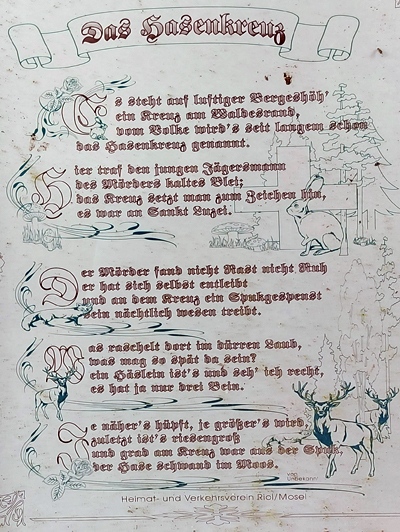 Das Hasenkreuz
Es steht auf luftiger Bergeshöh'
ein Kreuz am Waldesrand,
vom Volke wird's seit langem schon
das Hasenkreuz genannt.
Hier traf den jungen Jägersmann
des Mörders kaltes Blei;
das Kreuz setzt man zum Zeichen hin,
es war an Sankt Luzei.
Der Mörder fand nicht Rast nicht Ruh
er hat sich selbst entleibt
und an dem Kreuz ein Spukgespenst
sein nächtlich wesen treibt.
Was raschelt dort im dürren Laub,
was mag so spät da sein?
ein Häslein ist's und seh' ich recht,
es hat ja nur drei Bein.
Je näher's hüpft, je größer's wird,
zuletzt ist's riesengroß
und grad am Kreuz war aus der Spuk,
der Hase schwand im Moos.
von Unbekannt
Heimat- und Verkehrsverein Riol/Mosel